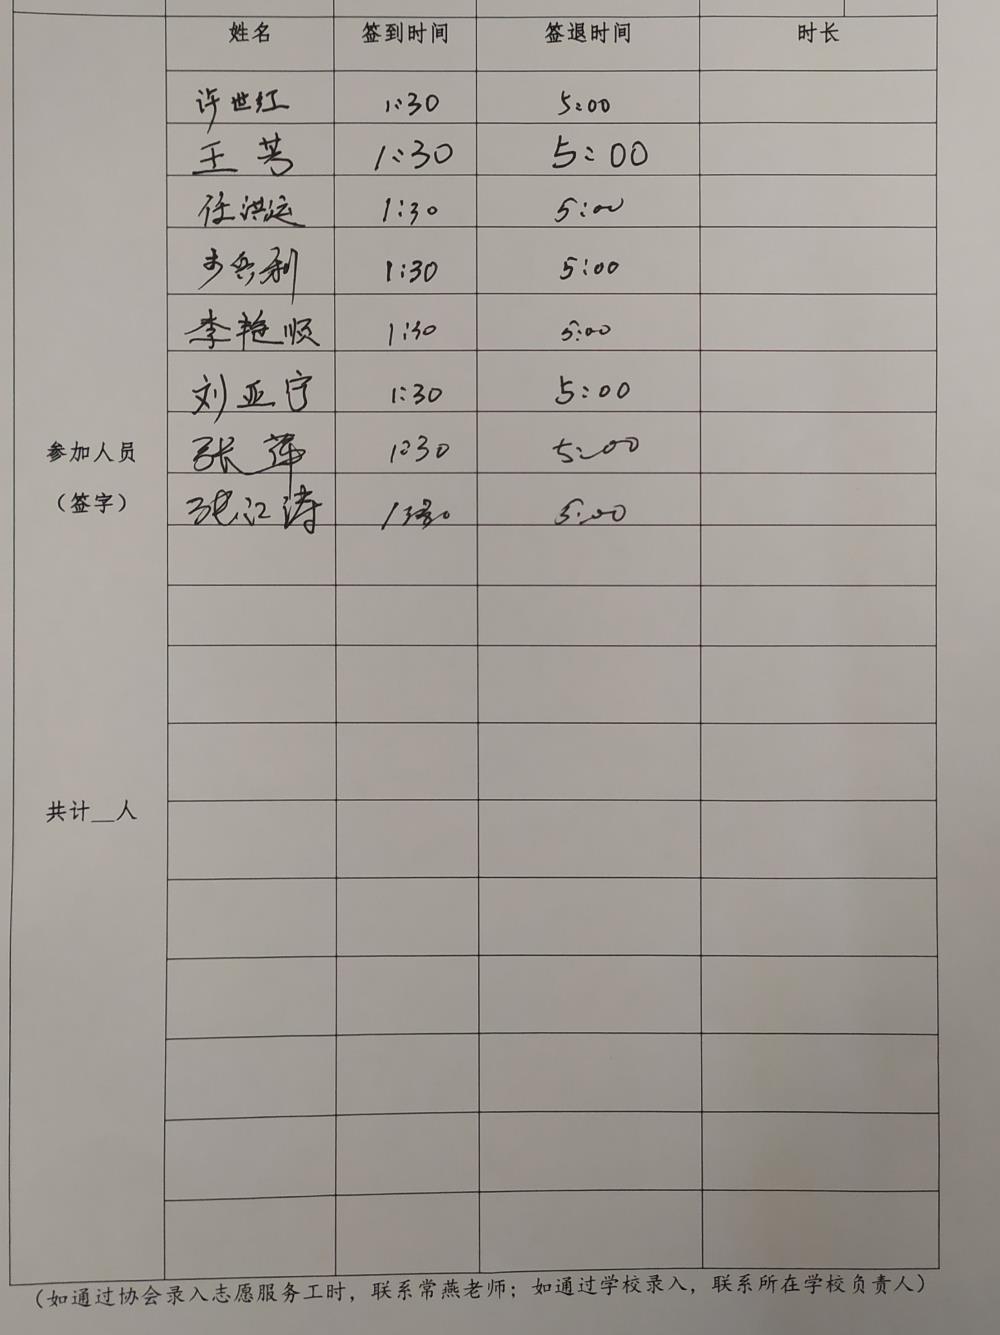 姓名 签到时间 签退时间 时长
许世红 1:30 5:00
王芳 1:30 5:00
任洪运 1:30 5:00
1:30 5:00
李艳顺 1:30 5:00
刘亚宁 1:30 5:00
参加人员 张萍 1:30 5:00
（签字） 张江涛 1:30 5:00
共计__人
（如通过协会录入志愿服务工时，联系常燕老师；如通过学校录入，联系所在学校负责人）